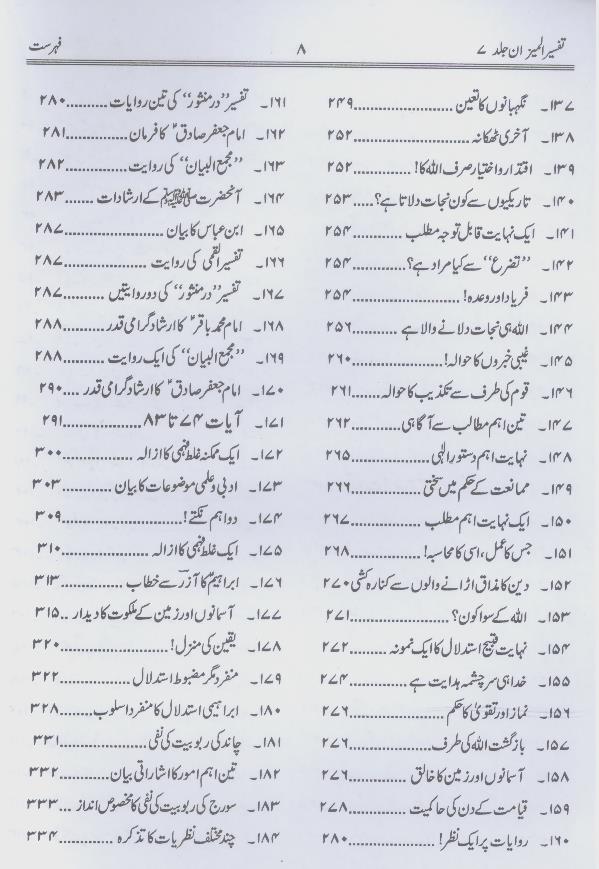 تفسیر المیزان جلد ۷
۸
فہرست
۱۳۷۔ نگہبانوں کا تعین........................۲۴۹
۱۳۸۔ آخری ٹھکانہ........................۲۵۲
۱۳۹۔ اقتدار و اختیار صرف اللہ کا!.............۲۵۲
۱۴۰۔ تاریکیوں سے کون نجات دلاتا ہے؟.....۲۵۳
۱۴۱۔ ایک نہایت قابل توجہ مطلب ............۲۵۴
۱۴۲۔ ”تضرع“ سے کیا مراد ہے؟.............۲۵۴
۱۴۳۔ فریاد اور وعدہ!........................۲۵۴
۱۴۴۔ اللہ ہی نجات دلانے والا ہے ............۲۵۶
۱۴۵۔ غیبی خبروں کا حوالہ!....................۲۶۰
۱۴۶۔ قوم کی طرف سے تکذیب کا حوالہ.......۲۶۱
۱۴۷۔ تین اہم مطالب سے آگاہی............۲۶۲
۱۴۸۔ نہایت اہم دستور الٰہی ................۲۶۵
۱۴۹۔ ممانعت کے حکم میں سختی ..............۲۶۶
۱۵۰۔ ایک نہایت اہم مطلب ................۲۶۷
۱۵۱۔ جس کا عمل، اسی کا محاسبہ!..............۲۶۸
۱۵۲۔ دین کا مذاق اڑانے والوں سے کنارہ کشی ۲۷۰
۱۵۳۔ اللہ کے سوا کون؟....................۲۷۱
۱۵۴۔ نہایت قبیح استدلال کا ایک نمونہ ........۲۷۲
۱۵۵۔ خدا ہی سرچشمہ ہدایت ہے ............۲۷۴
۱۵۶۔ نماز اور تقویٰ کا حکم....................۲۷۶
۱۵۷۔ بازگشت اللہ کی طرف................۲۷۶
۱۵۸۔ آسمانوں اور زمین کا خالق ............۲۷۶
۱۵۹۔ قیامت کے دن کی حاکمیت ............۲۷۸
۱۶۰۔ روایات پر ایک نظر!..................۲۸۰
۱۶۱۔ تفسیر ”درمنثور“ کی تین روایات ..........۲۸۰
۱۶۲۔ امام جعفر صادق ؑ کا فرمان............۲۸۱
۱۶۳۔ ”مجمع البیان“ کی روایت ..............۲۸۲
۱۶۴۔ آنحضرت ﷺ کے ارشادات ..........۲۸۳
۱۶۵۔ ابن عباس کا بیان....................۲۸۷
۱۶۶۔ تفسیر القمی کی روایت ................۲۸۷
۱۶۷۔ تفسیر ”درمنثور“ کی دو روایتیں ..........۲۸۷
۱۶۸۔ امام محمد باقر ؑ کا ارشاد گرامی قدر.......۲۸۸
۱۶۹۔ ”مجمع البیان“ کی ایک روایت ..........۲۸۸
۱۷۰۔ امام جعفر صادق ؑ کا ارشاد گرامی قدر ....۲۹۰
۱۷۱۔ آیات ۷۴ تا ۸۳....................۲۹۱
۱۷۲۔ ایک ممکنہ غلط فہمی کا ازالہ ............۳۰۰
۱۷۳۔ ادبی و علمی موضوعات کا بیان..........۳۰۳
۱۷۴۔ دو اہم نکتے!........................۳۰۹
۱۷۵۔ ایک غلط فہمی کا ازالہ................۳۱۰
۱۷۶۔ ابراہیمؑ کا آزر سے خطاب ............۳۱۳
۱۷۷۔ آسمانوں اور زمین کے ملکوت کا دیدار ..۳۱۵
۱۷۸۔ یقین کی منزل!......................۳۲۰
۱۷۹۔ منفرد مگر مضبوط استدلال ............۳۲۲
۱۸۰۔ ابراہیمی استدلال کا منفرد اسلوب........۳۲۸
۱۸۱۔ چاند کی ربوبیت کی نفی................۳۳۱
۱۸۲۔ تین اہم امور کا اشاراتی بیان..........۳۳۲
۱۸۳۔ سورج کی ربوبیت کی نفی کا مخصوص انداز ...۳۳۳
۱۸۴۔ چند مختلف نظریات کا تذکرہ ............۳۳۴